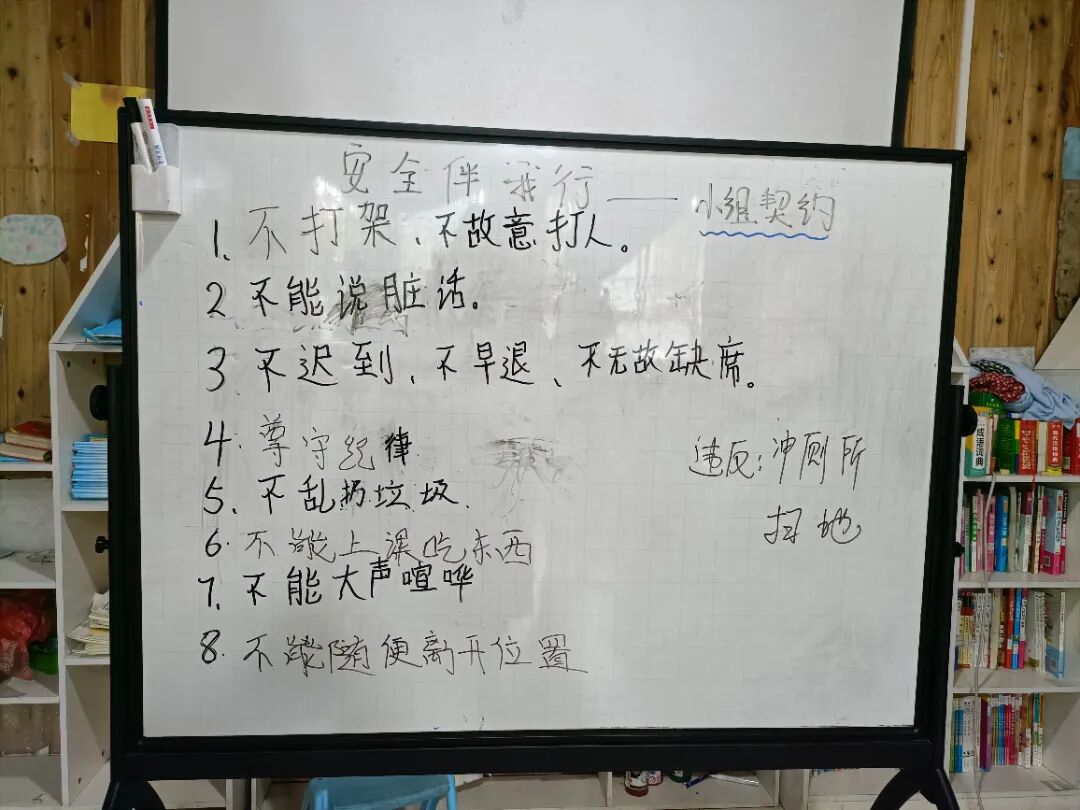 安全伴我行——小组契约
1、不打架、不故意打人。
2 不能说脏话。
3 不迟到、不早退、不无故缺席。
4. 尊守纪律
5、不乱扔垃圾.
6. 不能上课吃东西
7、不能大声喧哗
8. 不能随便离开位置
违反:冲厕所
扫地
成语词典